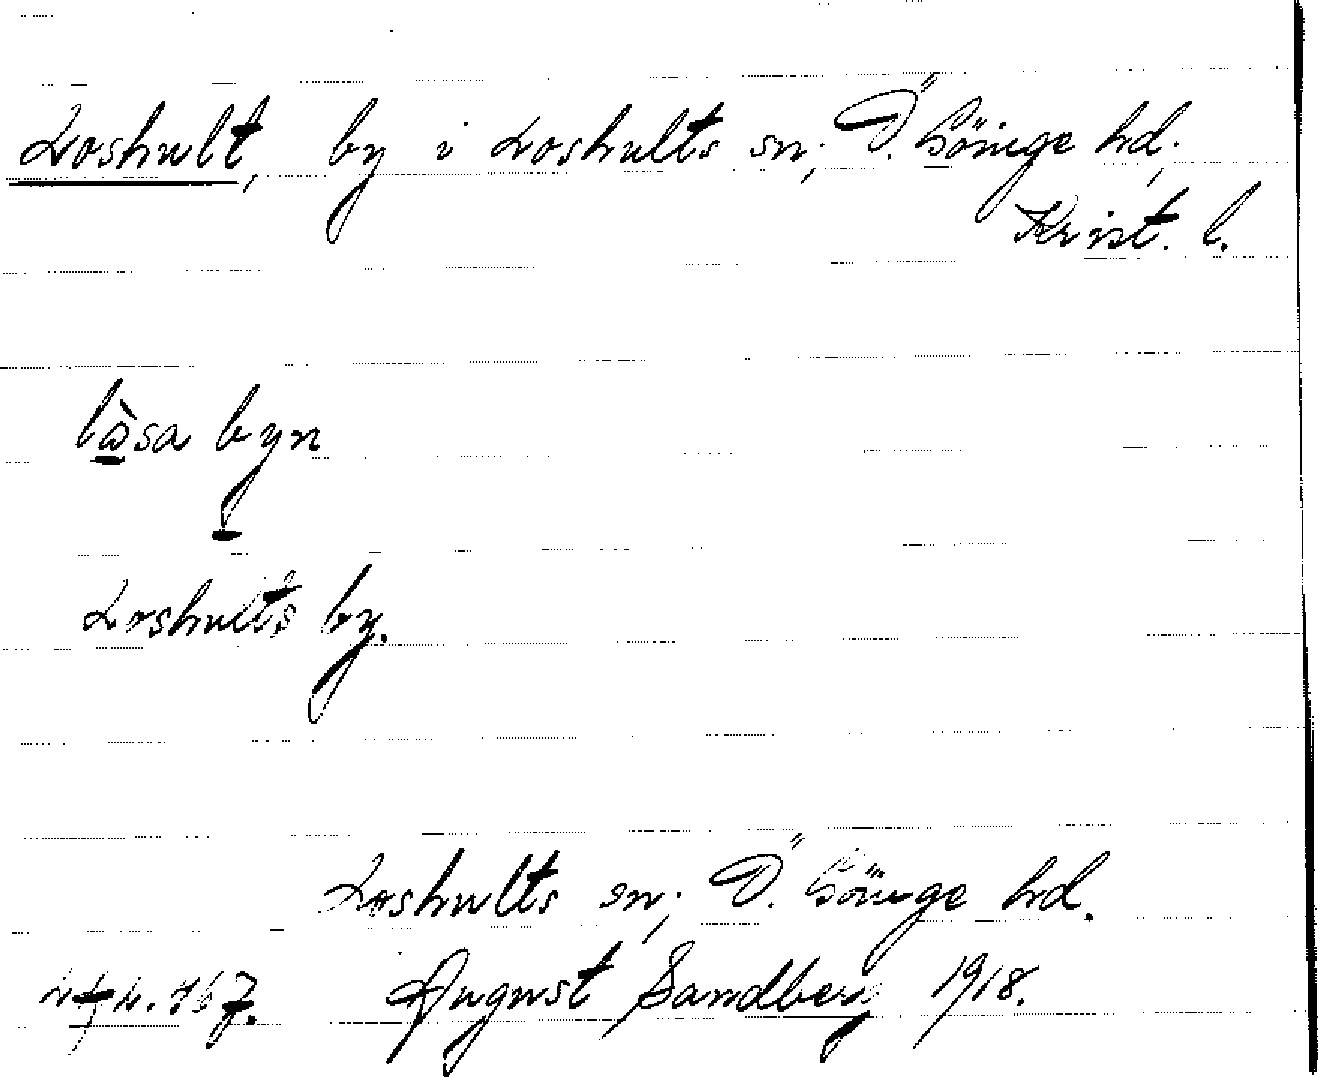 Loshult, by i Loshults sn; Ö. Göinge hd;
Krist. l.
lòsa byn
Loshults by.
Loshults sn; Ö. Göinge hd.
August Sandberg 1918.